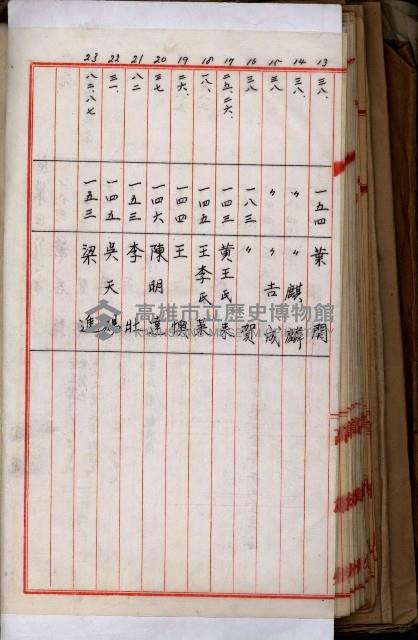 13 三八、 一五四 葉 関
14 三八、 〃 〃 麒麟
15 三八 〃 〃 吉成
16 三八 一八三 〃 賀
17 二五、二六、 一四三 黄王氏
18 一八、 一四五 王李氏
19 二六、 一四四 王
20 三七 一四六 陳明
21 八二 一五三 李 壯
22 三一、 一四五 吳天
23 八二、八七 一五三 梁 進
高雄市立歷史博物館
KAOHSIUNG MUSEUM OF HISTORY